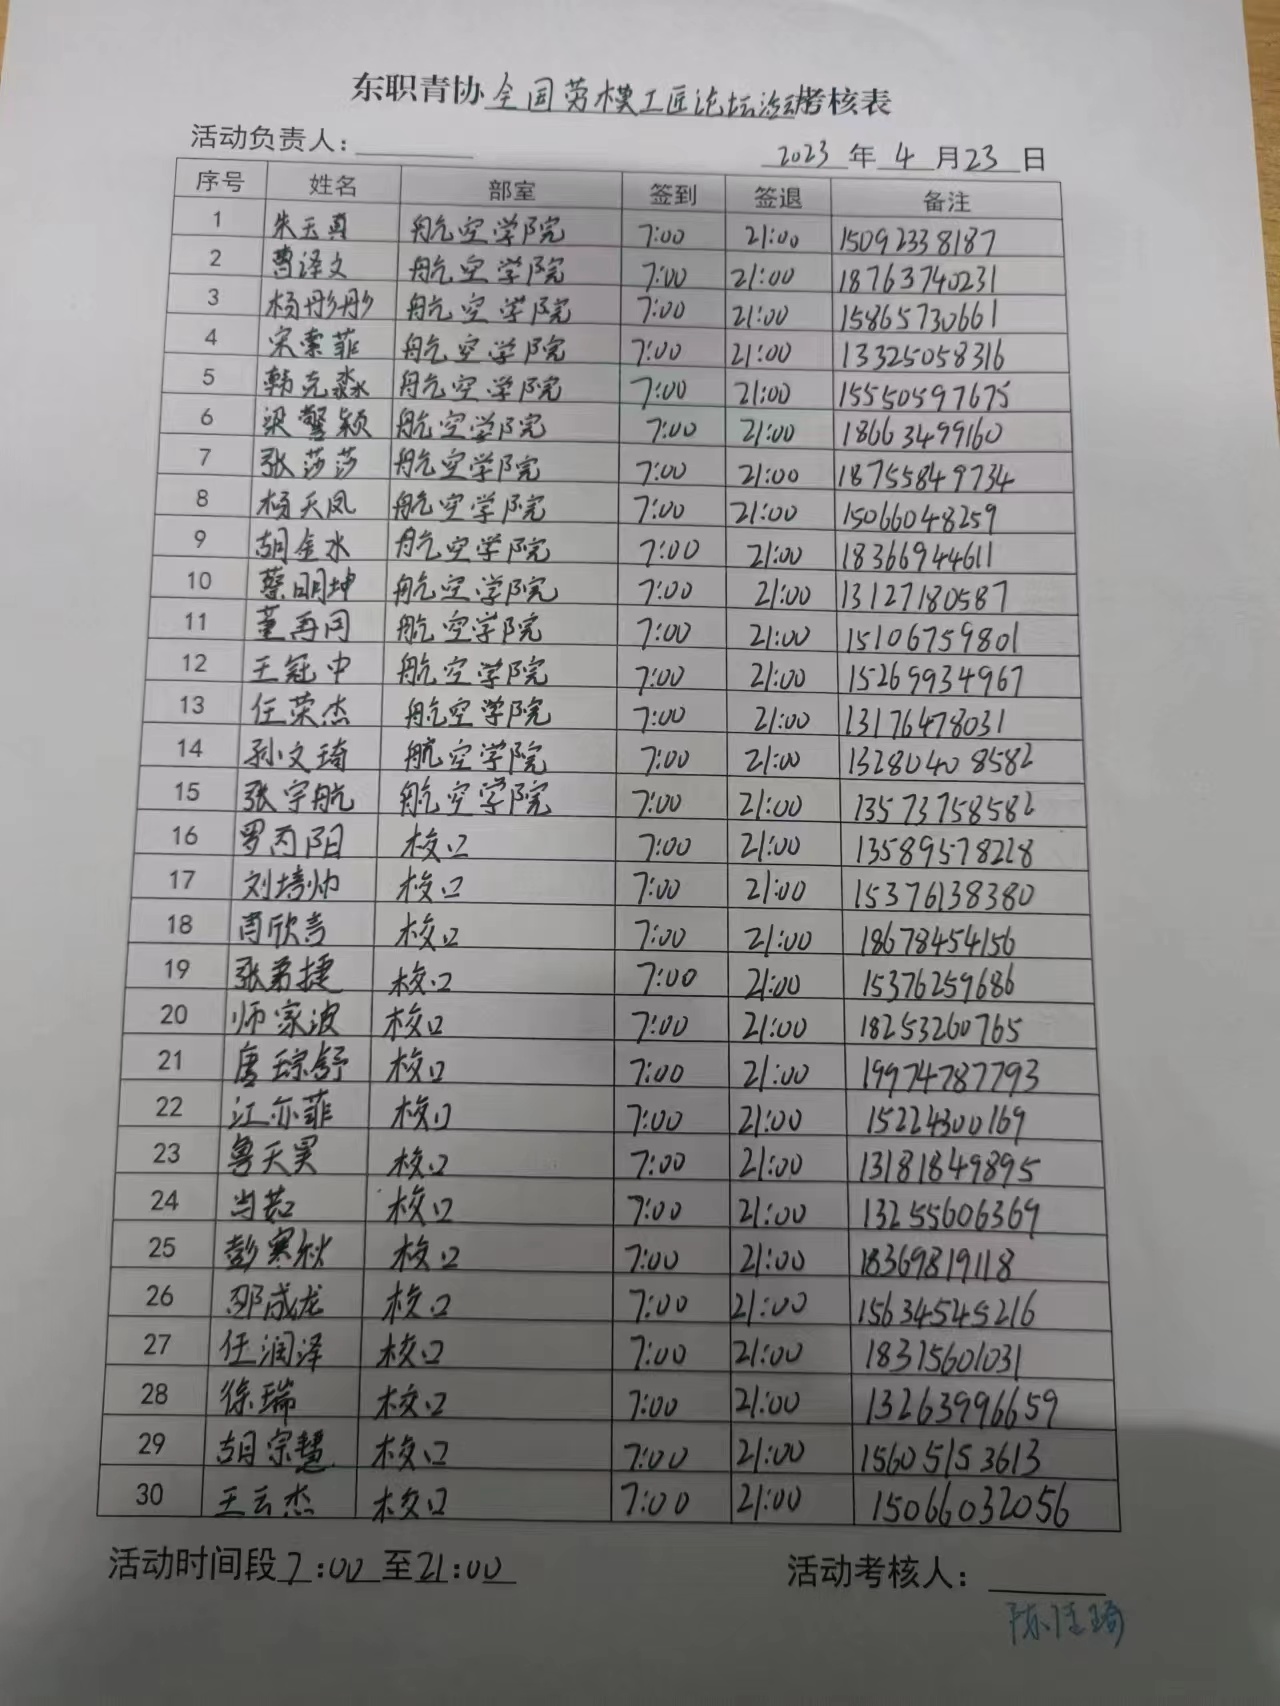 东职青协全国劳模工匠论坛活动考核表
活动负责人：
2023年4月23日
序号 姓名 部室 签到 签退 备注
1 朱天真 航空学院 7:00 21:00 15092338187
2 曹泽文 航空学院 7:00 21:00 18763740231
3 杨彤彤 航空学院 7:00 21:00 15865730661
4 宋索菲 航空学院 7:00 21:00 13325058316
5 韩克淼 航空学院 7:00 21:00 15550597675
6 梁馨颖 航空学院 7:00 21:00 18663499160
7 张莎莎 航空学院 7:00 21:00 18755849734
8 杨天凤 航空学院 7:00 21:00 15066048259
9 胡金水 航空学院 7:00 21:00 18366944611
10 蔡明坤 航空学院 7:00 21:00 13127180587
11 董再同 航空学院 7:00 21:00 15106759801
12 王冠中 航空学院 7:00 21:00 15269934967
13 任荣杰 航空学院 7:00 21:00 13176478031
14 孙文琦 航空学院 7:00 21:00 13280408582
15 张宇航 航空学院 7:00 21:00 13573758582
16 罗丙阳 校口 7:00 21:00 13589578228
17 刘培帅 校口 7:00 21:00 15376138380
18 校口 7:00 21:00 18678454156
19 张若捷 校口 7:00 21:00 15376259686
20 师家波 校口 7:00 21:00 18253260765
21 唐琮舒 校口 7:00 21:00 19974787793
22 江亦菲 校口 7:00 21:00 15224300169
23 鲁天昊 校口 7:00 21:00 13181849895
24 尚茹 校口 7:00 21:00 13255606369
25 彭寒秋 校口 7:00 21:00 18369819118
26 邵成龙 校口 7:00 21:00 15634545216
27 任润泽 校口 7:00 21:00 18315601031
28 徐瑞 校口 7:00 21:00 13263996659
29 胡宗慧 校口 7:00 21:00 15605153613
30 王云杰 校口 7:00 21:00 15066032056
活动时间段7:00至21:00
活动考核人：
陈佳琦